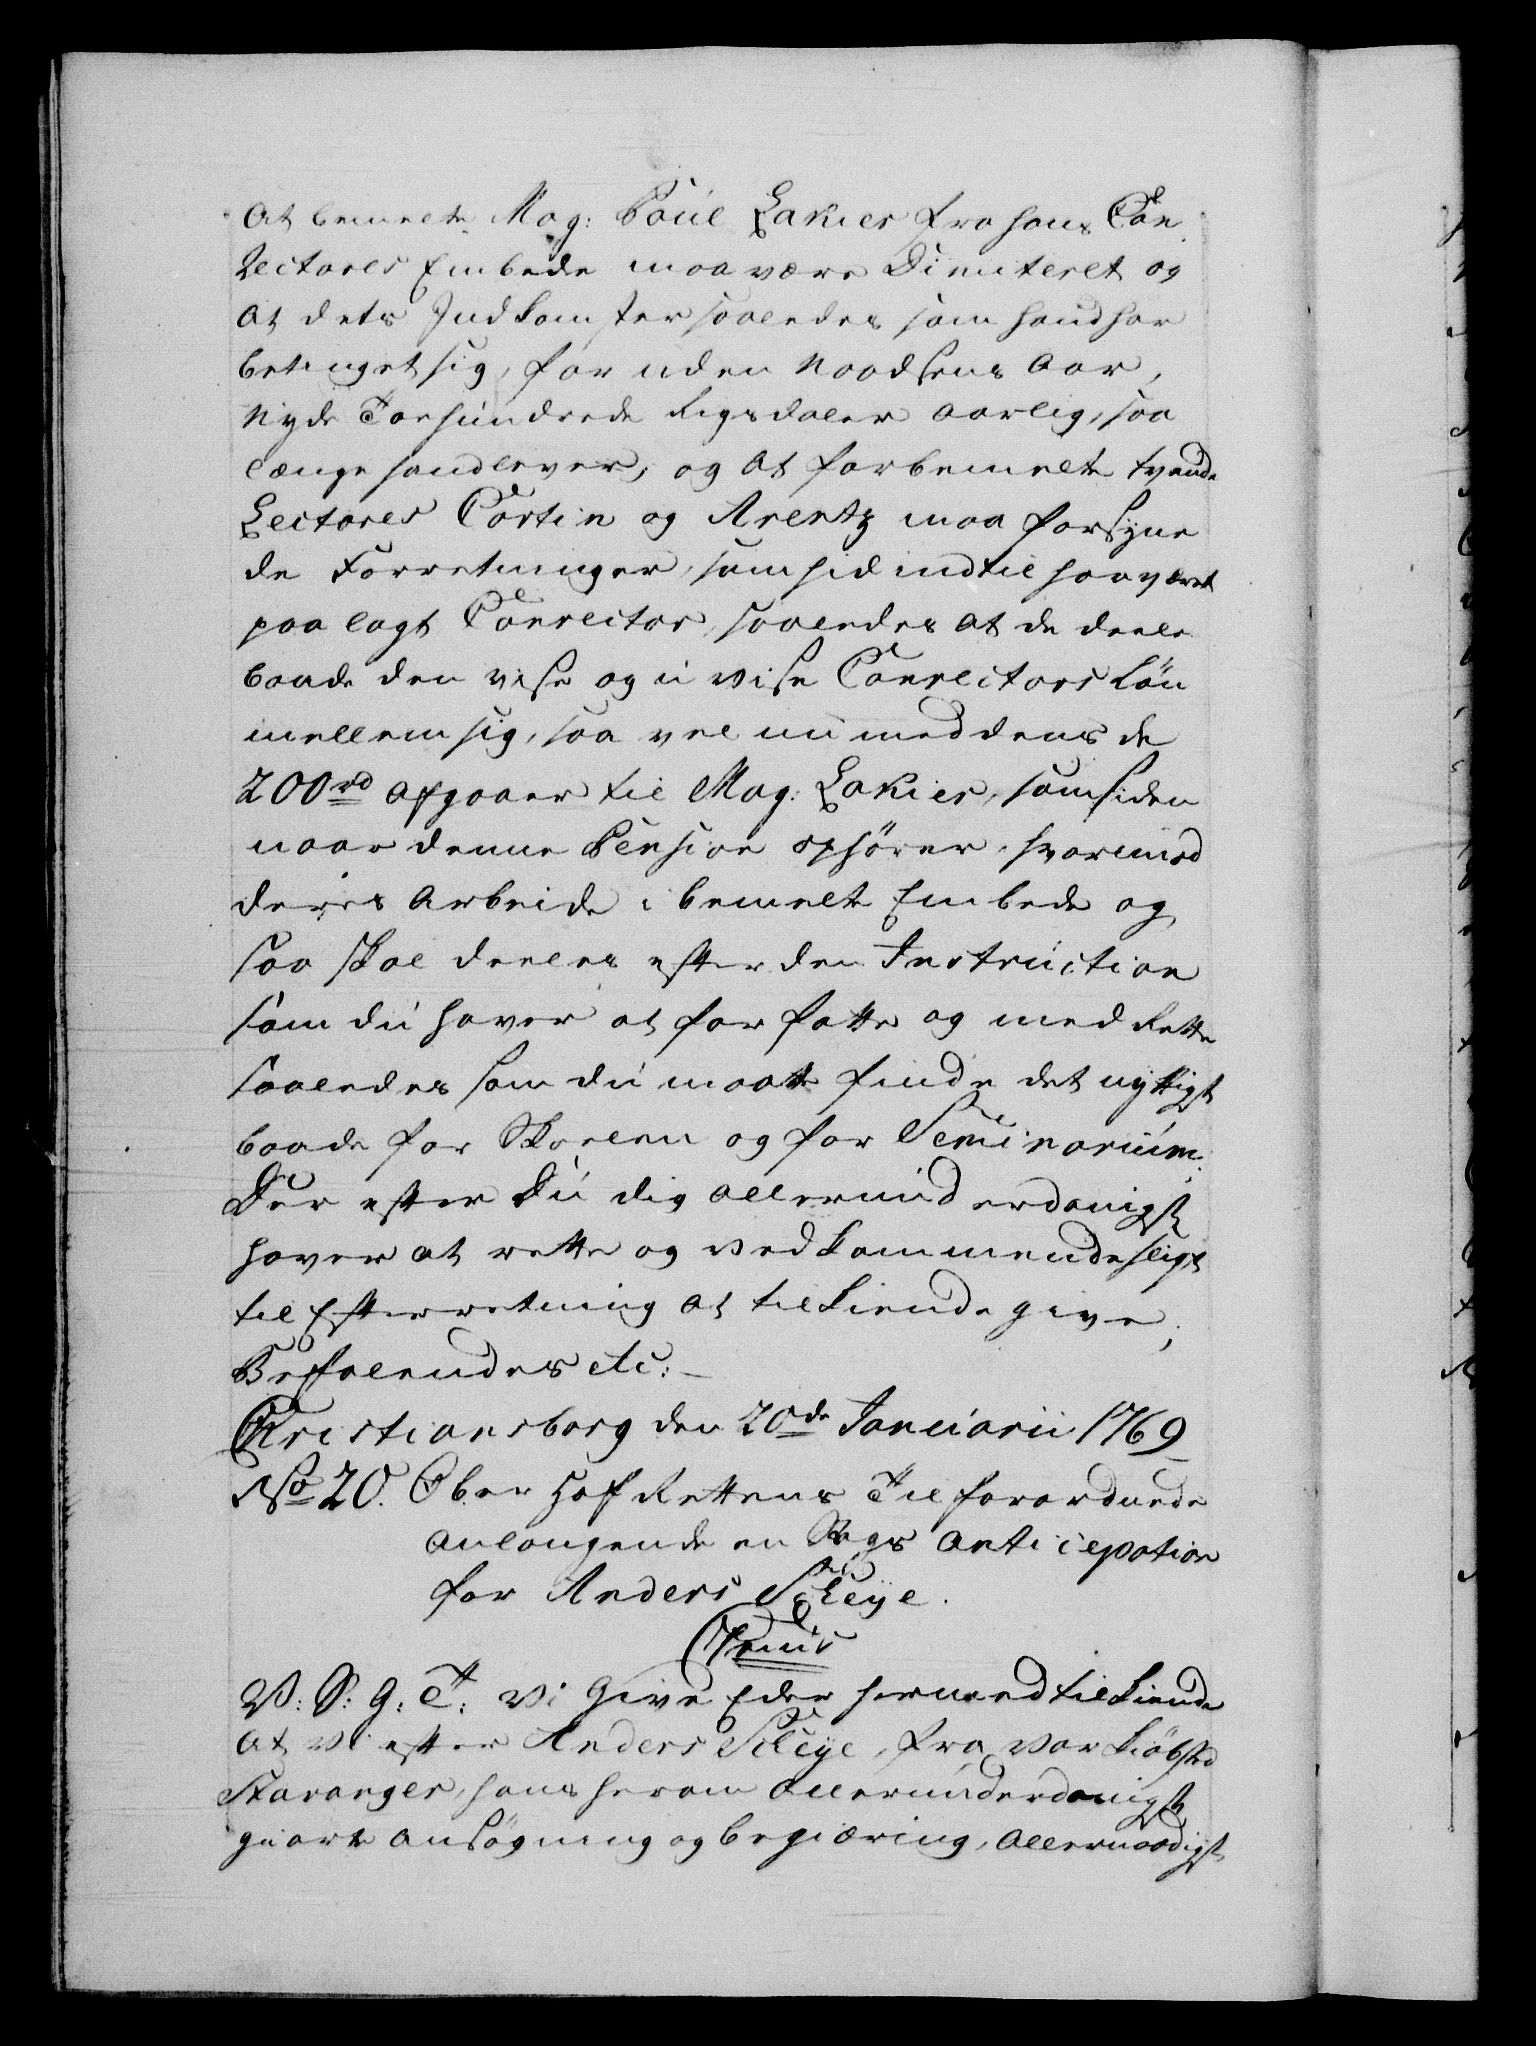 at bemelte Mag: Poul Lakier fra hans Con
Rectores Embede maa være Dimiteret og
at dets Indkomster saaledes som hand har
betinget sig, for uden Naadsens Aar,
Nyde Toehundrede Rigsdaler aarlig, saa
længe hand lever, og at forbemelte tvende
Lectores Cortin og Arentz maa forsyne
de Forretninger, som hid indtil har været
paa lagt Conrector, saaledes at de deele
baade den visse og u visse Conrectors Løn
mellem sig, saa vel nu meddens de
200 rd afgaaer til Mag: Lakier, som siden
naar denne Pension ophører, hvorimod
deres Arbeide i bemelte Embede og
saa skal deeles efter den Instruction
som du haver at forfatte og med Rette
saaledes som du maatte finde det nyttigst
baade for Skoelen og for Seminarium.
Der efter Du dig allerunderdanigst
haver at rette og vedkommende sligt
til Efterretning at tilkiendegive,
Befalendes etc:
Christiansborg den 20de Januarii 1769
No 20. Ober Hof Rettens Tilforordnede
anlangende en Sags Anticipation
for Anders Scheye.
V: S: G: T: Vi Give Eder hermed tilkiende
at vi efter Anders Scheye, fra vor Kiøbsted
Stavanger, hans herom allerunderdanigst
giorte ansøgning og begiæring, allernaadigst